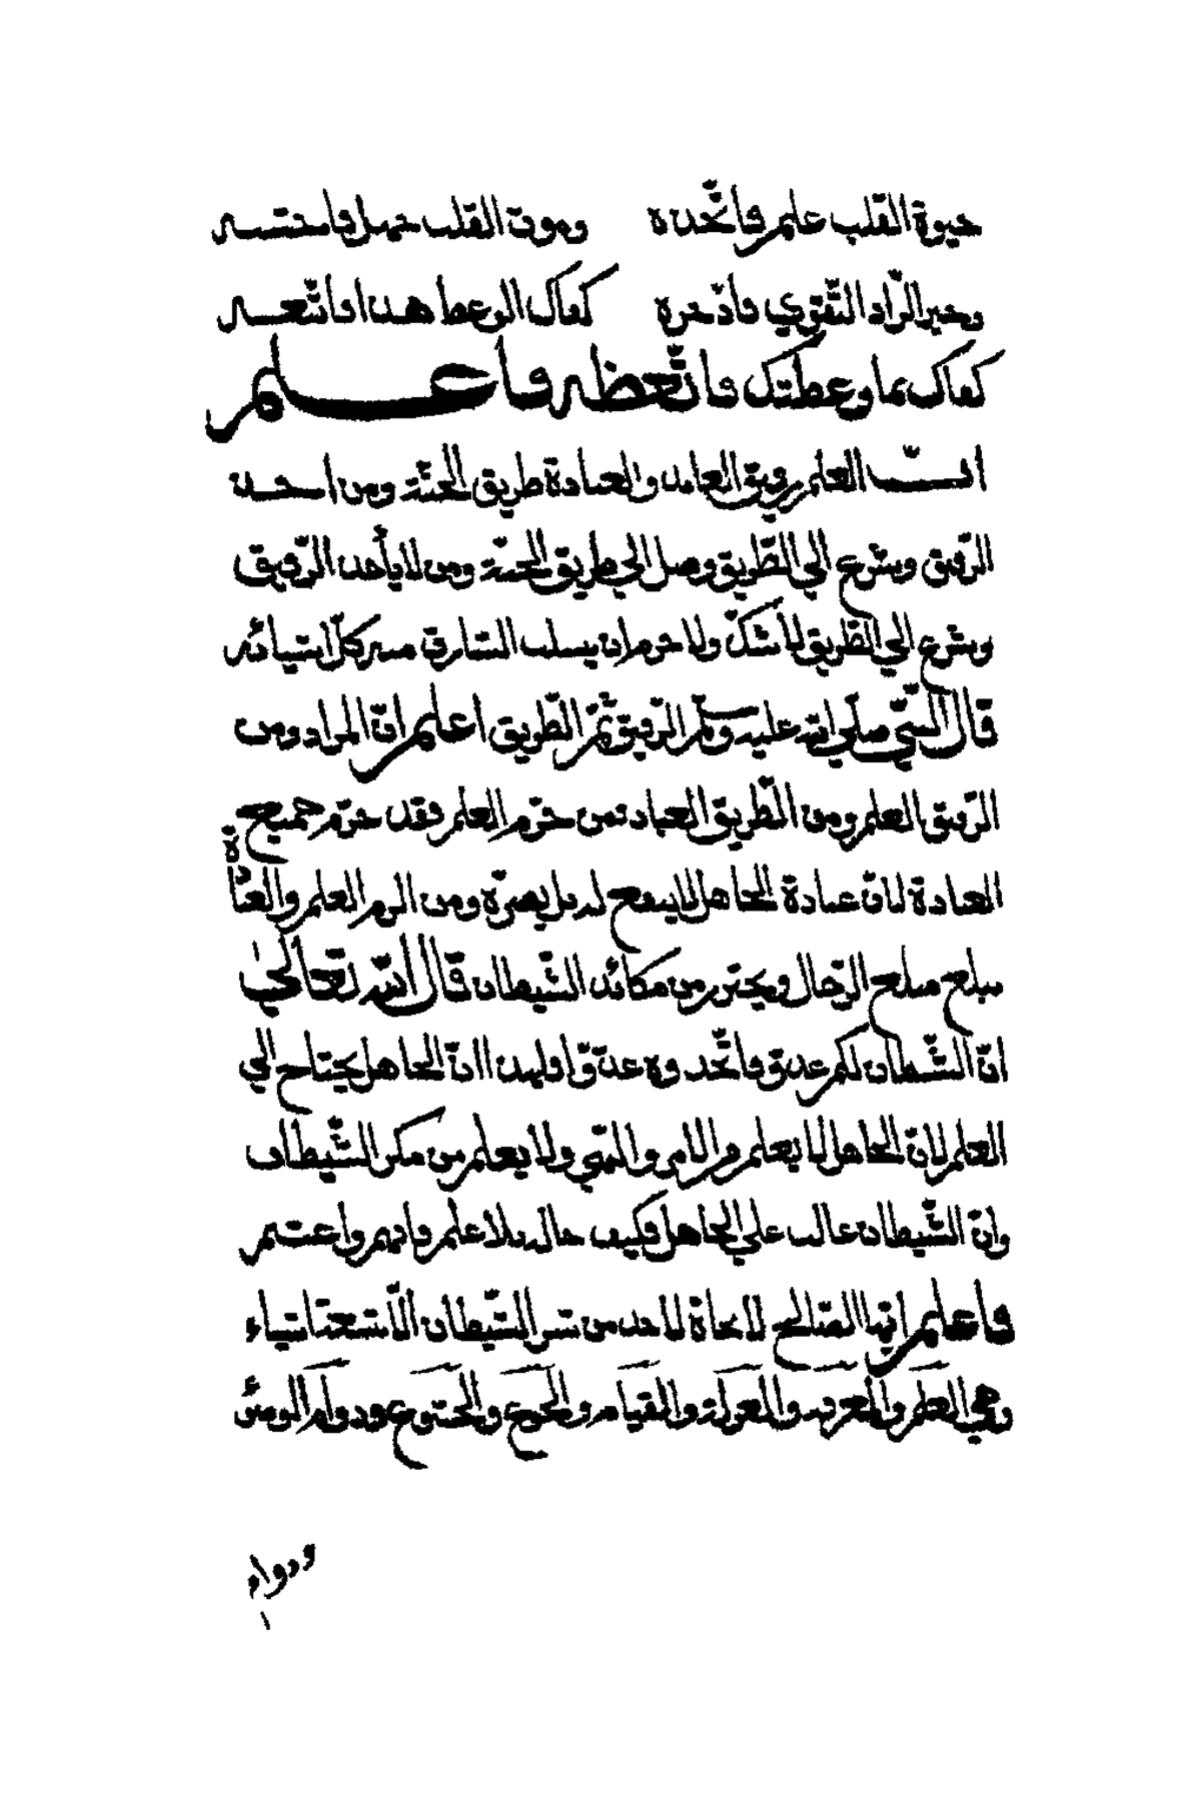 حيوة القلب علم فاتّخذه وموت القلب جهل فاجتنبه
وخير الزّاد التّقوي فادّخره كفاك الوعظ هذا فاتّعظه
كفاك بما وعظتك فاتّعظه فاعلم
انّ العلم رفيق العابد والعبادة طريق الجنّة ومن اخذ
الرّفيق وشرع الي الطّريق وصل الي طريق الجنّة ومن لا يأخذ الرّفيق
وشرع الي الطّريق لا شكّ ولا جرم ان يسلب السّارق منه كلّ اشيائه
قال النّبيّ صلّي الله عليه وسلّم الرّفيق ثمّ الطّريق اعلم انّ المراد ومن
الرّفيق العلم ومن الطّريق العبادة من حرّم العلم فقد حرّم جميع
العبادة لانّ عبادة الجاهل لا ينفع له بل يضرّه ومن الزم العلم والعبادة
مبلغ مبلغ الرّجال ويحترز من مكائد الشّيطان قال الله تعالي
انّ الشّيطان لكم عدوّ فاتّخذوه عدوّا فلهذا انّ الجاهل يحتاج الي
العلم لانّ الجاهل لا يعلم من الامر والنّهي ولا يعلم من مكر الشّيطان
وانّ الشّيطان غالب علي الجاهل فكيف حاله بلا علم فافهم واغتنم
فاعلم ايّها الصّالح لا نجاة لاحد من شرّ الشّيطان الّا بتسعة اشياء
وهي العلم والمعرفة والعزلة والقيام والجوع والخشوع ودوام الوضوء
ودوام
١